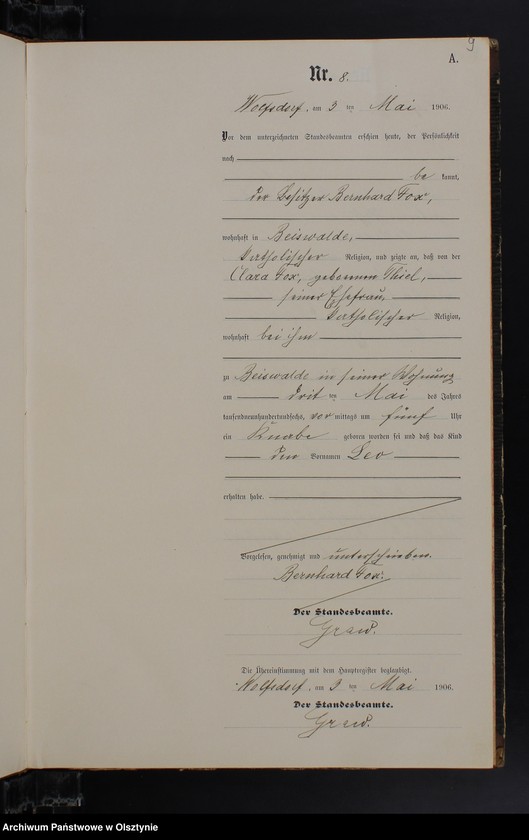 9
A.
Nr. 8.
Wolfsdorf, am 3 ten Mai 1906.
Vor dem unterzeichneten Standesbeamten erschien heute, der Persönlichkeit
nach
be kannt,
der Besitzer Bernhard Fox,
wohnhaft in Beiswalde,
katholischer Religion, und zeigte an, daß von der
Clara Fox, geborenen Thiel,
seiner Ehefrau,
katholischer Religion,
wohnhaft bei ihm
zu Beiswalde in seiner Wohnung
am drit ten Mai des Jahres
tausendneunhundertundsechs, vor mittags um fünf Uhr
ein Knabe geboren worden sei und daß das Kind
den Vornamen Leo
erhalten habe.
Vorgelesen, genehmigt und unterschrieben.
Bernhard Fox.
Der Standesbeamte.
Die Übereinstimmung mit dem Hauptregister beglaubigt.
Wolfsdorf, am 3 ten Mai 1906.
Der Standesbeamte.
Archiwum Państwowe w Olsztynie